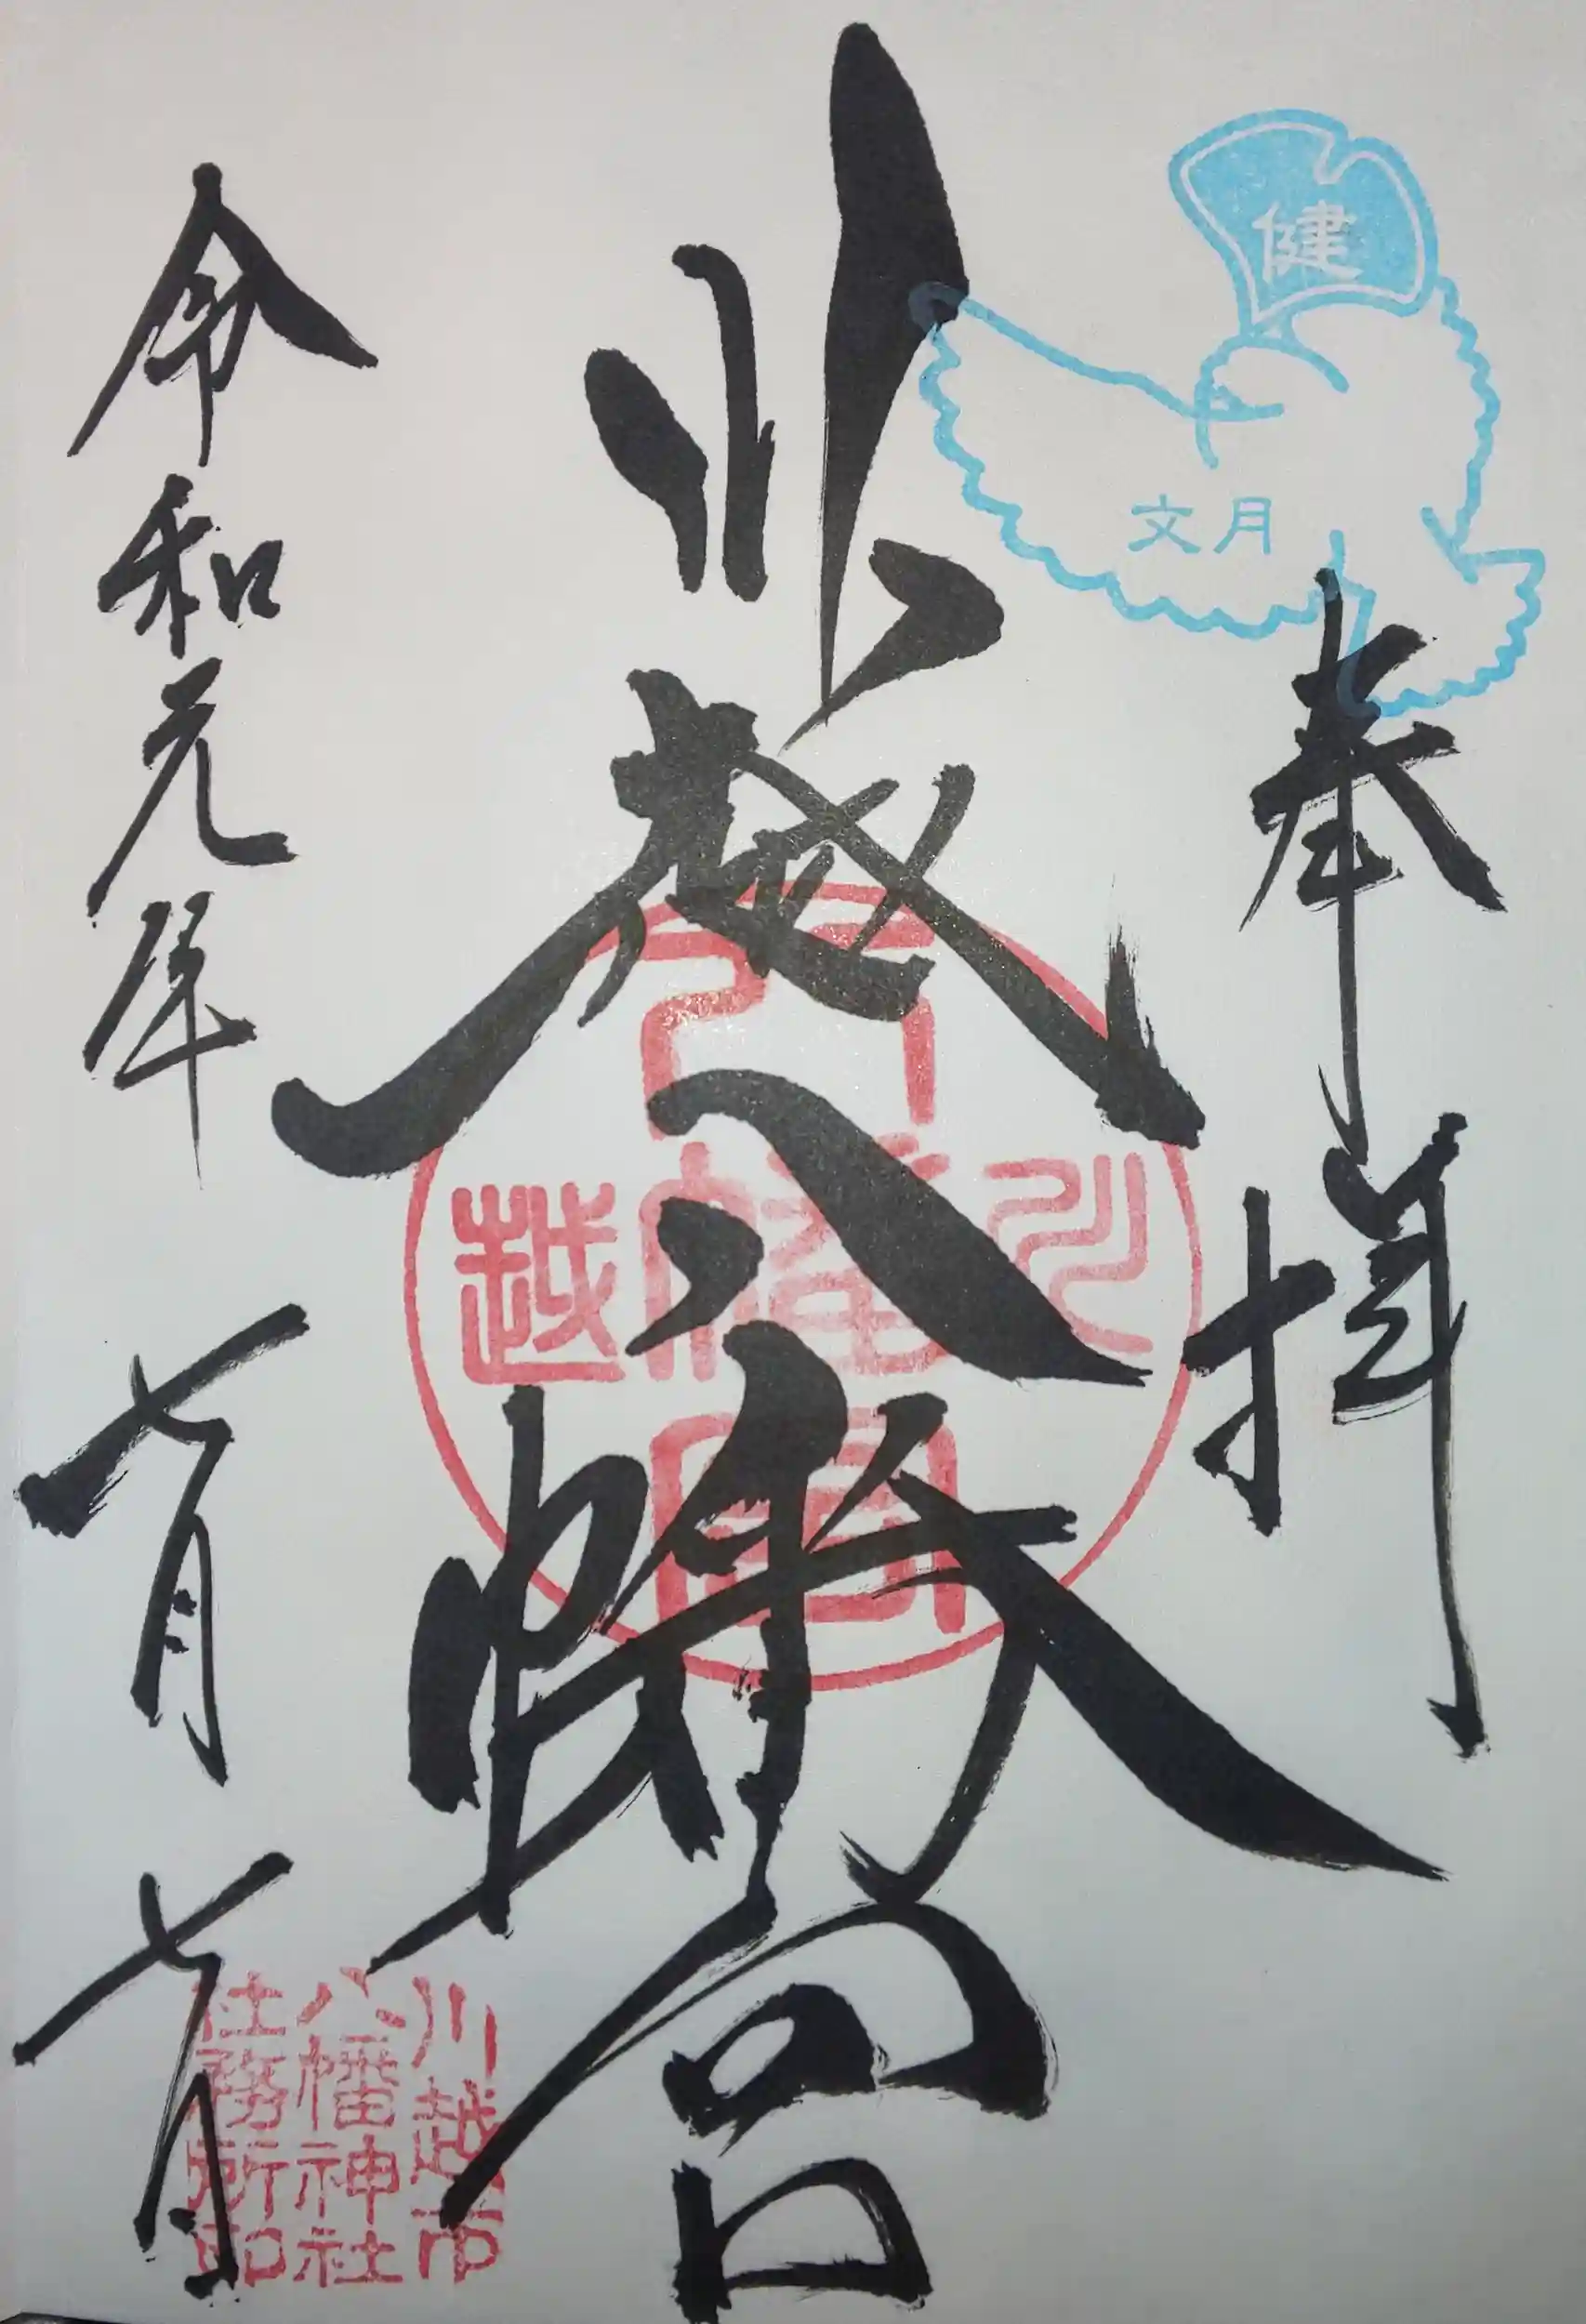 健
文月
奉拝
川越八幡宮
川越八幡宮
令和元年 七月 七日
川越市
八幡神社
社務所印